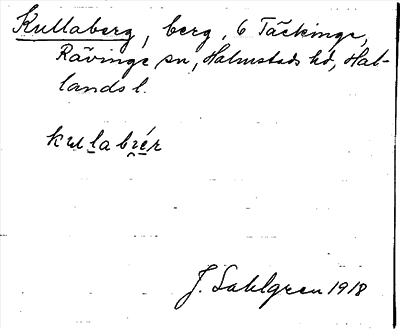 Kullaberg, berg, 6 Täckinge,
Rävinge sn, Halmstads hd, Hal-
lands l.
kullabrér
J. Sahlgren 1918